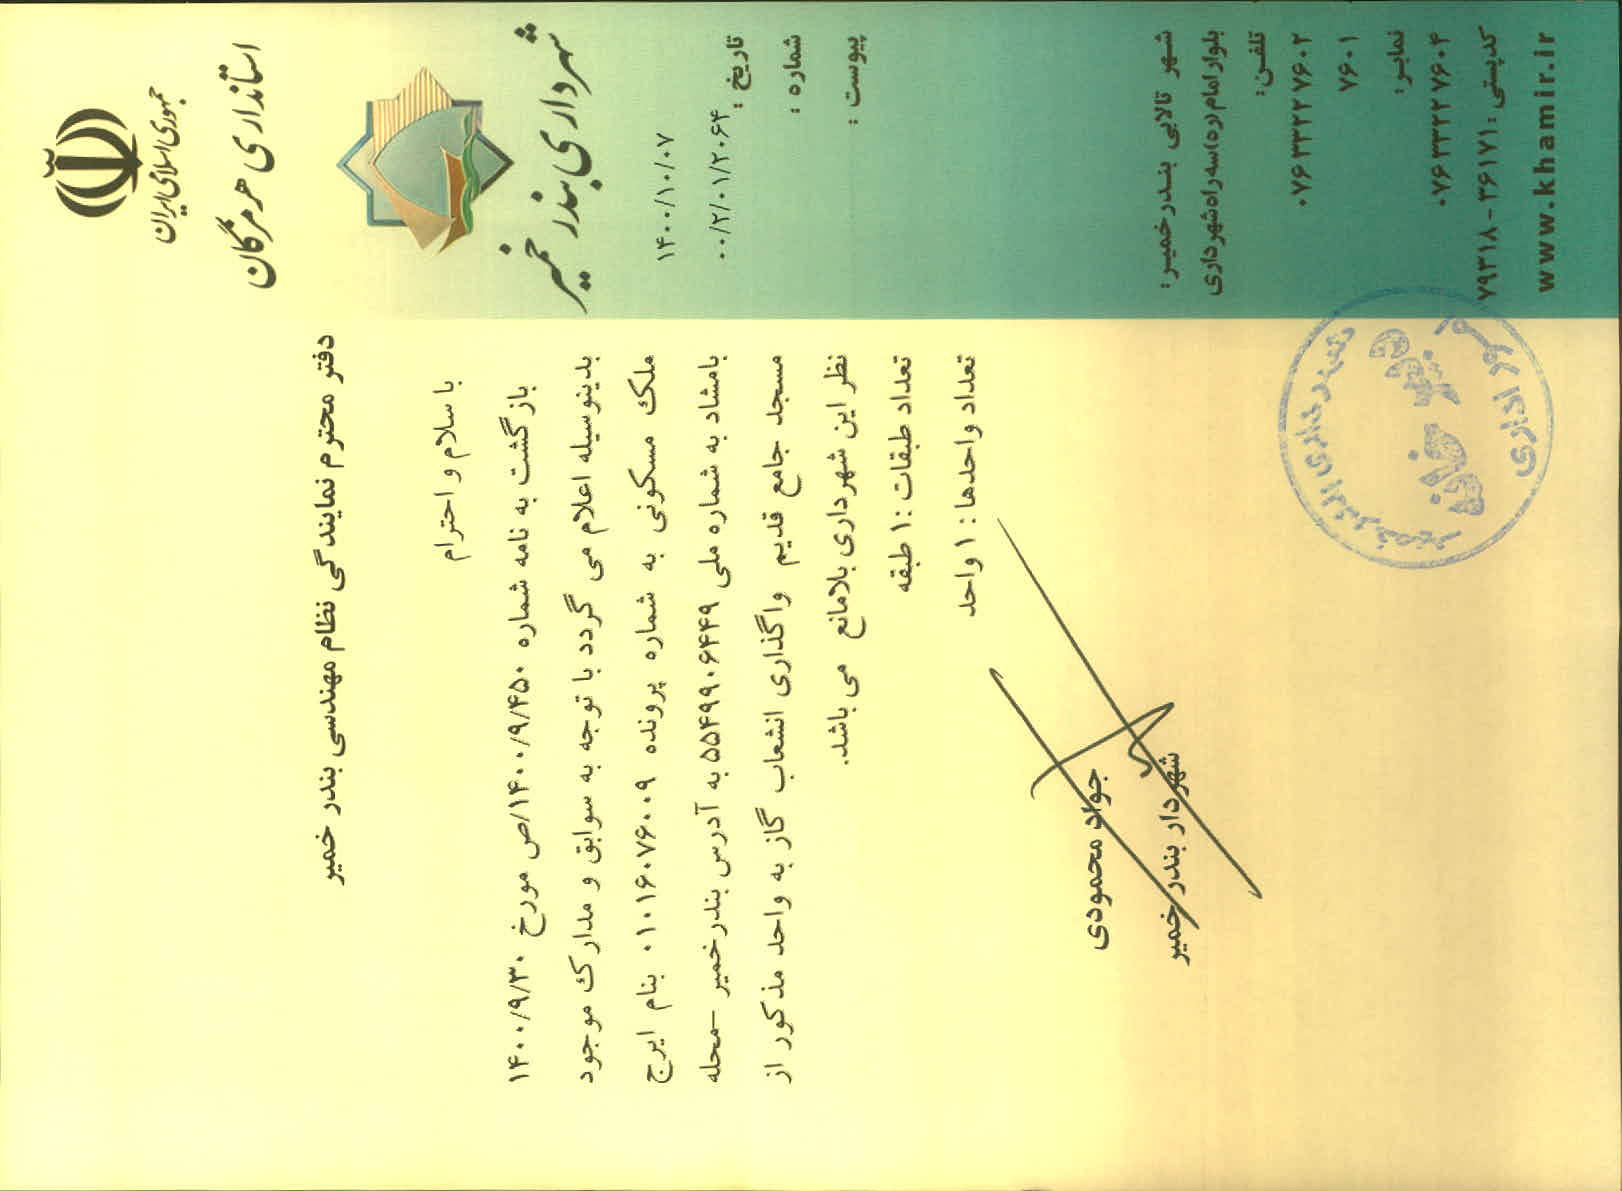 جمهوری اسلامی ایران
استانداری هرمزگان
شهرداری بندر خمیر
۱۴۰۰/۱۰/۰۷
تاریخ :
۰۰/۲/۰۱/۲۰۶۴
شماره :
پیوست :
دفتر محترم نمایندگی نظام مهندسی بندر خمیر
با سلام و احترام
بازگشت به نامه شماره ۱۴۰۰/۹/۴۵۰/ص مورخ ۱۴۰۰/۹/۳۰
بدینوسیله اعلام می گردد با توجه به سوابق و مدارک موجود
ملک مسکونی به شماره پرونده ۰۱۰۱۶۰۷۶۰۰۹ بنام ایرج
بامشاد به شماره ملی ۵۵۴۹۹۰۶۴۴۹ به آدرس بندرخمیر -محله
مسجد جامع قدیم واگذاری انشعاب گاز به واحد مذکور از
نظر این شهرداری بلامانع می باشد.
تعداد طبقات :۱ طبقه
تعداد واحدها : ۱ واحد
جواد محمودی
شهردار بندر خمیر
شهرداری بندر خمیر
امور اداری
شهر تالابی بندرخمیر:
بلوار امام (ره) سه راه شهرداری
تلفن:
۰۷۶۳۳۲۲۷۶۰۲
۷۶۰۱
نمابر:
۰۷۶۳۳۲۲۷۶۰۴
کدپستی: ۳۶۱۷۱-۷۹۳۱۸
www.khamir.ir